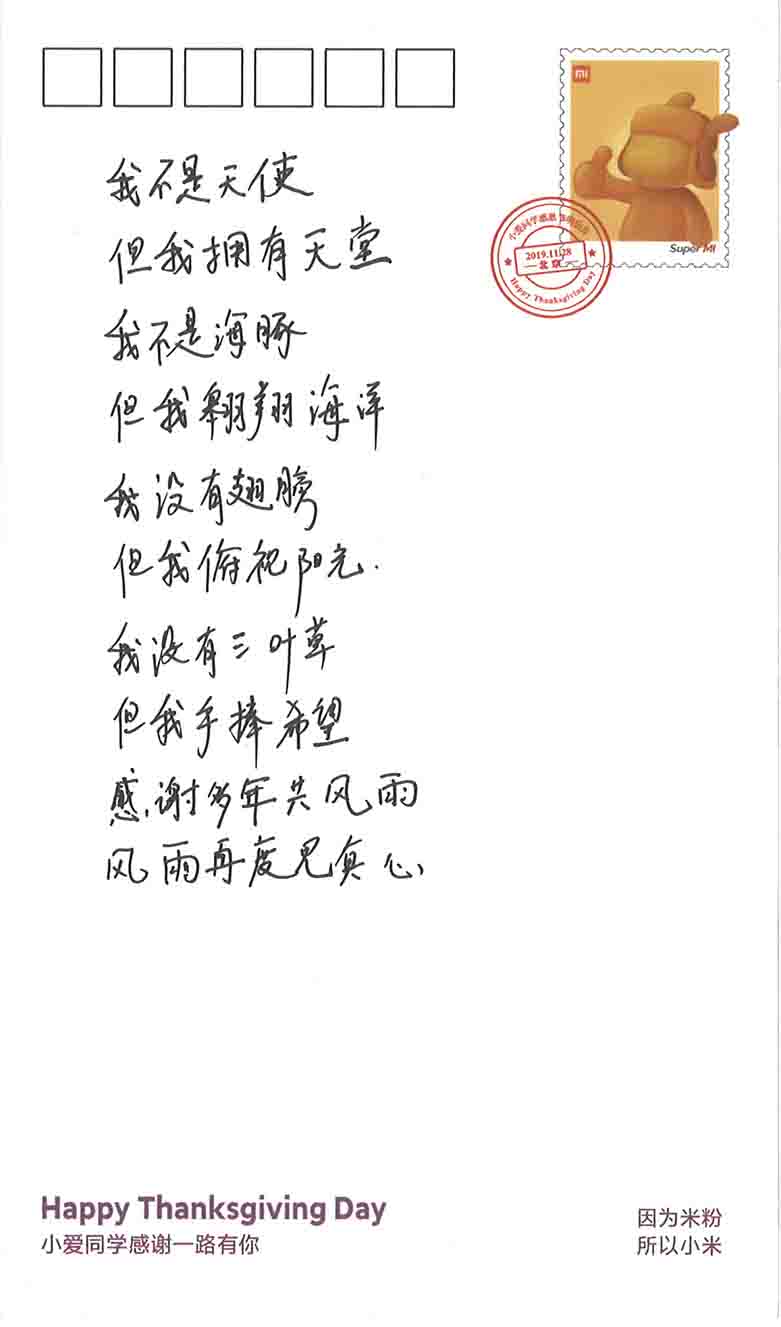 MI
Super MI
2019.11.28
北京
Happy Thanksgiving Day
我不是天使
但我拥有天堂
我不是海豚
但我翱翔海洋
我没有翅膀
但我俯视阳光.
我没有三叶草
但我手捧希望
感谢多年共风雨
风雨再度见真心
Happy Thanksgiving Day
小爱同学感谢一路有你
因为米粉
所以小米